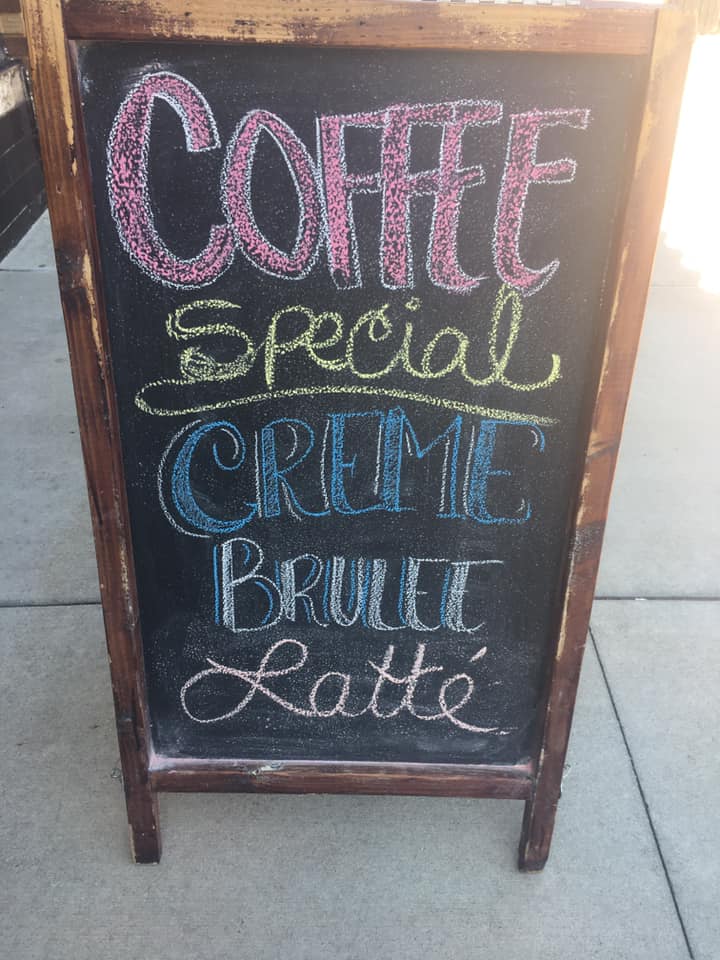 COFFEE
Special
CREME
BRULEE
Latté